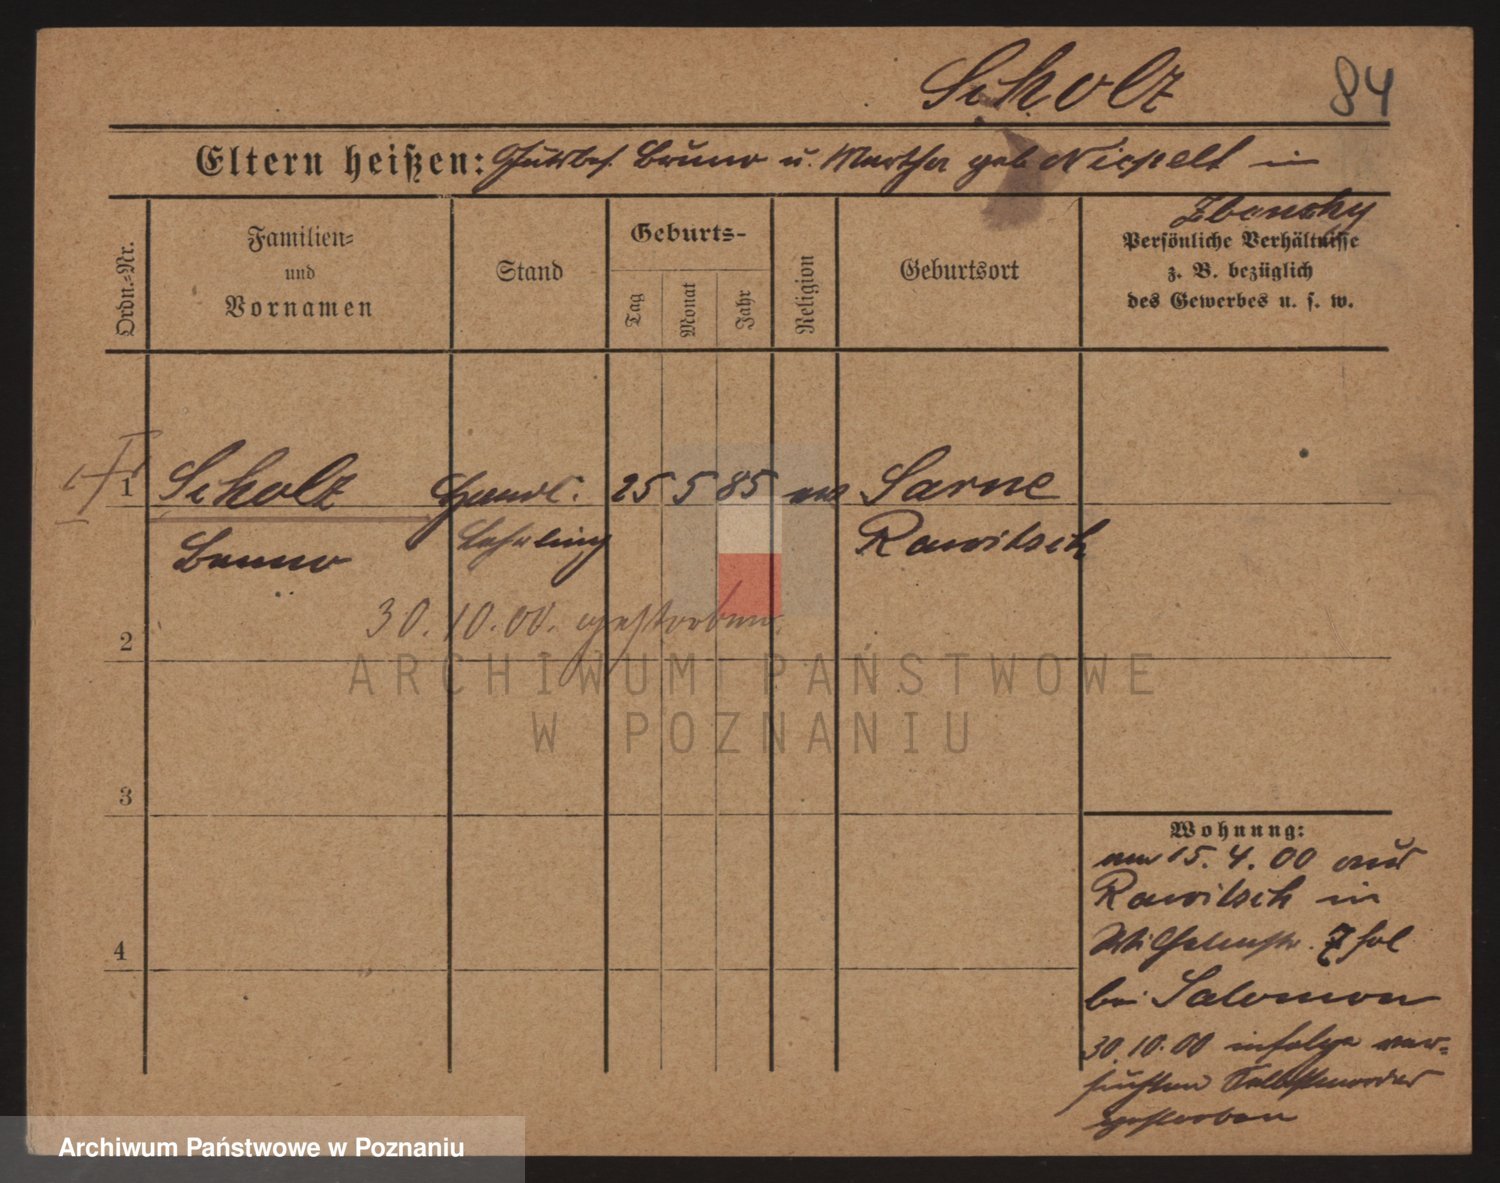 Scholz 84
Eltern heißen: Gutsbes. Bruno u. Martha geb Nickelt in
Zbenchy
Ordn.-Nr.
Familien-
und
Vornamen
Stand
Geburts-
Tag
Monat
Jahr
Religion
Geburtsort
Persönliche Verhältnisse
z. B. bezüglich
des Gewerbes u. s. w.
1 Scholz Handl. 25 5 85 ev Sarne
Bruno Lehrling Rawitsch
30.10.00. gestorben.
2
3
4
Wohnung:
am 15.4.00 aus
Rawitsch in
Wilhelmstr. 7 hol
bei Salomon
30.10.00 infolge ver-
suchten Selbstmordes
gestorben
ARCHIWUM PAŃSTWOWE
W POZNANIU
Archiwum Państwowe w Poznaniu